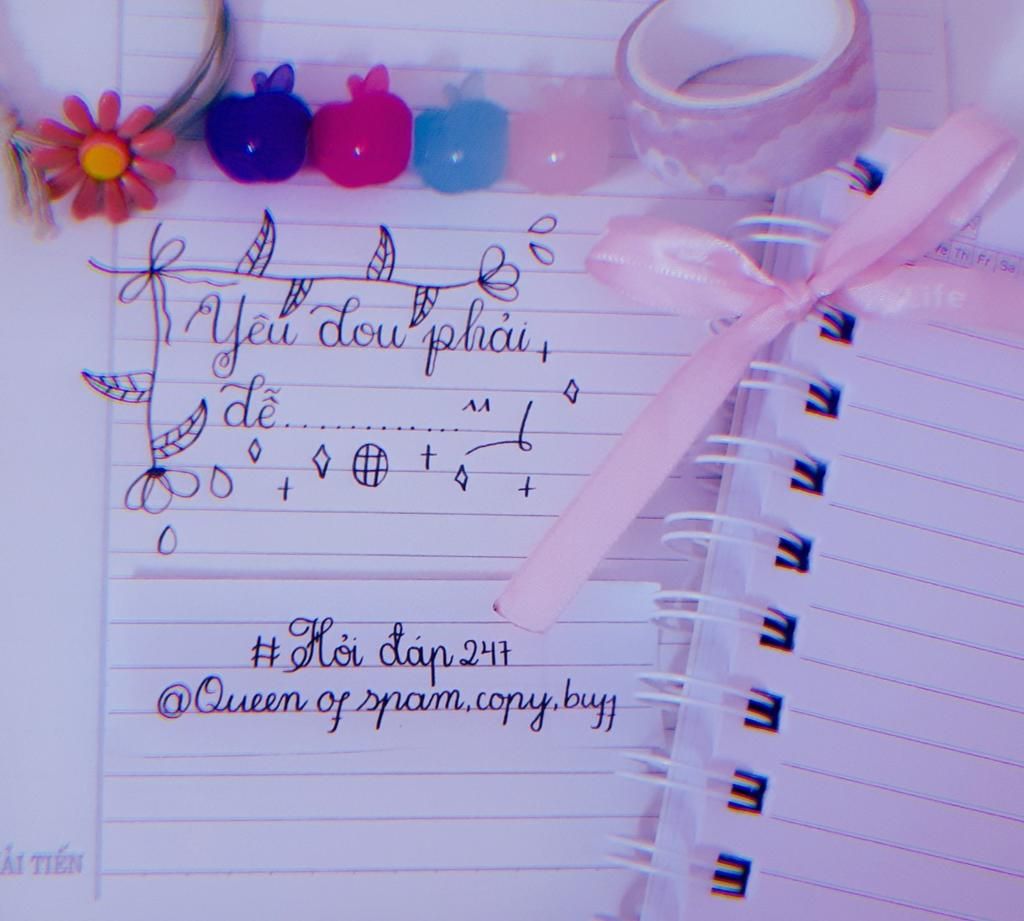 We Th Fr Sa
Life
Yêu đou phải,
dễ............^^
#Hỏi đáp 247
@Queen of spam,copy,buff
ẢI TIẾN